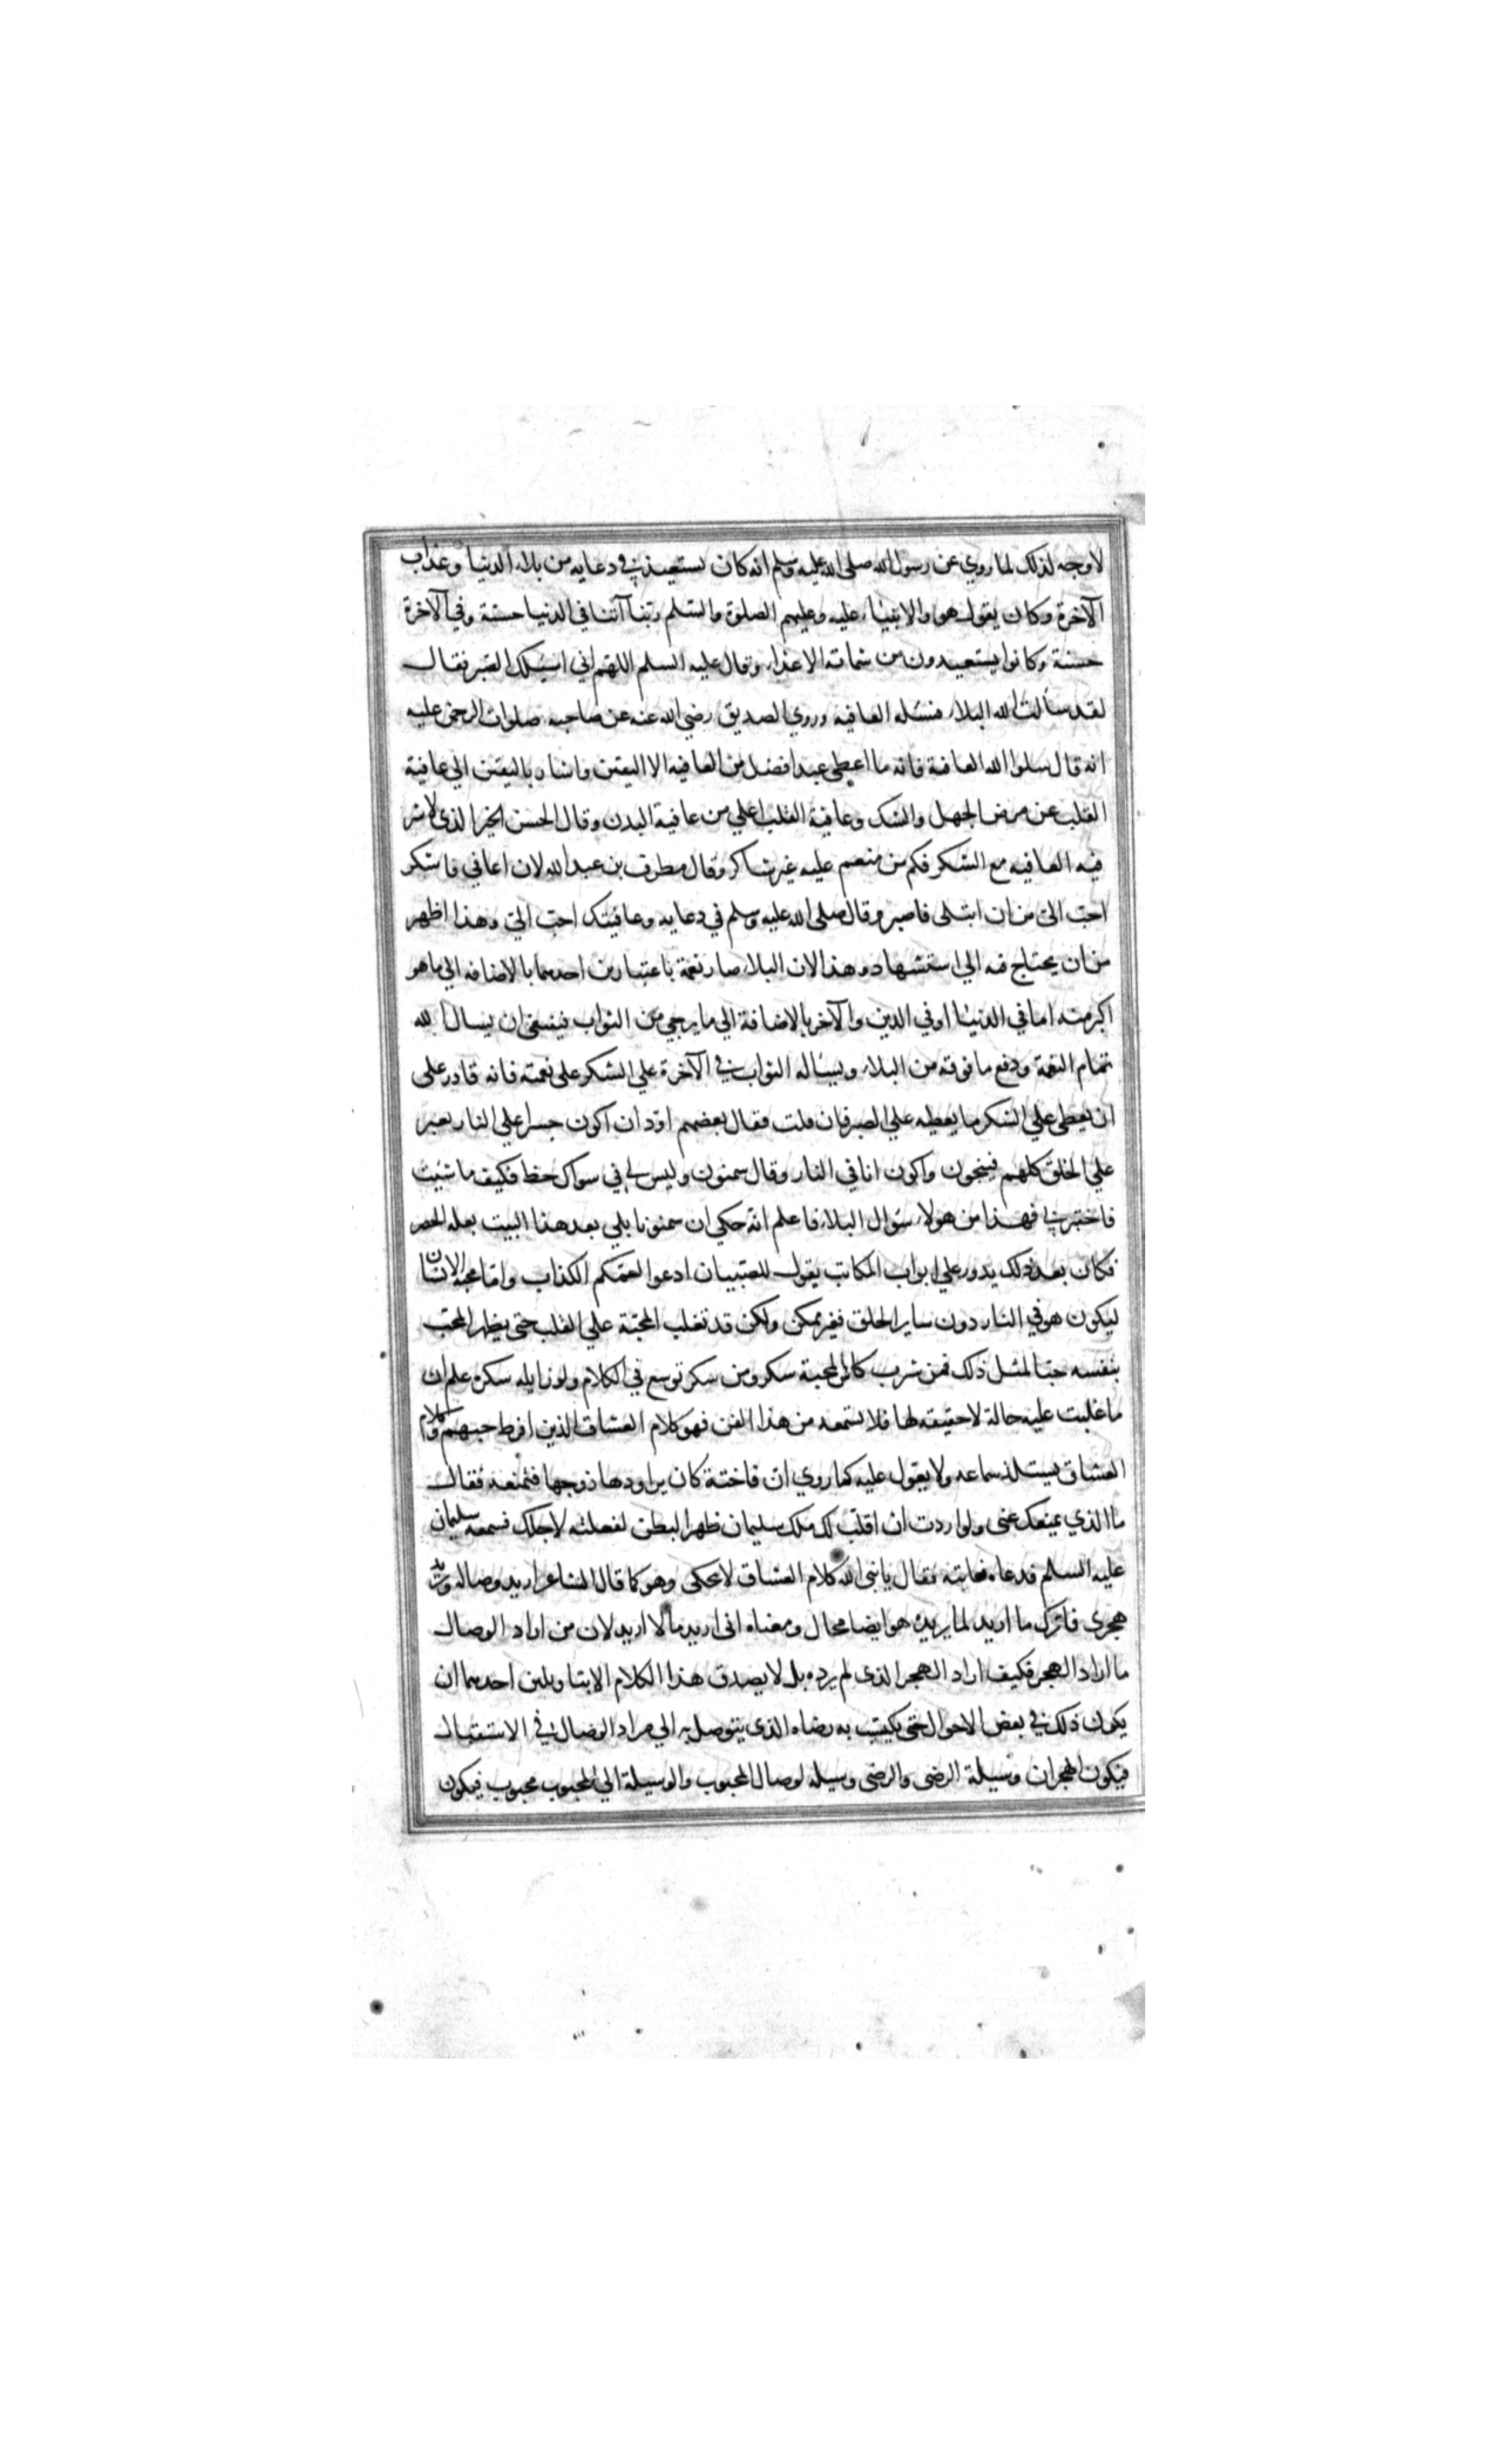 لاوجه لذلك لما روي عن رسول الله صلى الله عليه وسلم انه كان يستعيذ في دعايه من بلاء الدنيا وعذاب
الآخرة وكان يقول هو والانبياء عليه وعليهم الصلوة والسلم ربنا آتنا في الدنيا حسنة وفي الآخرة
حسنة وكانوا يستعيدون من شماتة الاعداء وقال عليه السلم اللهم اني اسئلك الصبر فقال
لقد سألت الله البلاء فسئله العافيه وروي الصديق رضي الله عنه عن صاحبه صلوات الرحمن عليه
انه قال سلوا الله العافية فانه ما اعطي عبد افضل من العافيه الا اليقين واشار باليقين الي عافية
القلب عن مرض الجهل والشك وعافية القلب اعلي من عافية البدن وقال الحسن الخير الذي لا شر
فيه العافيه مع الشكر فكم من منعم عليه غير شاكر وقال مطرف بن عبد الله لان اعافي فاشكر
احب الي من ان ابتلى فاصبر وقال صلى الله عليه وسلم في دعايه وعافيتك احب الي وهذا اظهر
من ان يحتاج فيه الي استشهاد وهذا لان البلاء صار نعمة باعتبارين احدهما بالاضافه الي ما هو
اكبر منه اما في الدنيا او في الدين والآخر بالاضافة الي ما يرجي من الثواب فينبغي ان يسال الله
تمام النعمة ودفع ما فوقه من البلاء ويساله الثواب في الآخرة علي الشكر على نعمته فانه قادر على
ان يعطي علي الشكر ما يعطيه علي الصبر فان قلت فقال بعضهم اود ان اكون جسرا علي النار يعبر
علي الخلق كلهم فينجون واكون انا في النار وقال سمنون وليس لي في سواك حظ فكيف ما شئت
فاختبرني فهذا من هولاء سؤال البلاء فاعلم انه حكي ان سمنونا بلي بعد هذا البيت بعله الحصر
فكان بعد ذلك يدور علي ابواب المكاتب يقول للصبيان ادعوا لعمكم الكذاب واما محبة الانسان
ليكون هو في النار دون ساير الخلق فغير ممكن ولكن قد تغلب المحبة علي القلب حتى يظن المحب
بنفسه حبا لمثل ذلك فمن شرب كاس المحبة سكر ومن سكر توسع في الكلام ولو زايله سكره علم ان
ما غلبت عليه حالة لا حقيقه لها فلا يستمعه من هذا الفن فهو كلام العشاق الذين افرط حبهم وكلام
العشاق يستلذ سماعه ولا يعول عليه كما روي ان فاختة كان يراودها زوجها فتمنعه فقال
ما الذي يمنعك عني ولو اردت ان اقلب لك ملك سليمان ظهرا لبطن لفعلته لاجلك فسمعه سليمان
عليه السلم فدعاه فعاتبه فقال يا نبي الله كلام العشاق لا يحكى وهو كما قال الشاعر اريد وصاله ويريد
هجري فاترك ما اريد لما يريد هو ايضا محال ومعناه انى اريد ما لا اريد لان من اراد الوصال
ما اراد الهجر فكيف اراد الهجر الذي لم يرده بل لا يصدق هذا الكلام الا بتاويلين احدهما ان
يكون ذلك في بعض الاحوال حتى يكتسب به رضاه الذي يتوصل به الي مراد الوصال في الاستقبال
فيكون الهجران وسيلة الرضى والرضى وسيله لوصال المحبوب والوسيلة الي المحبوب محبوب فيكون